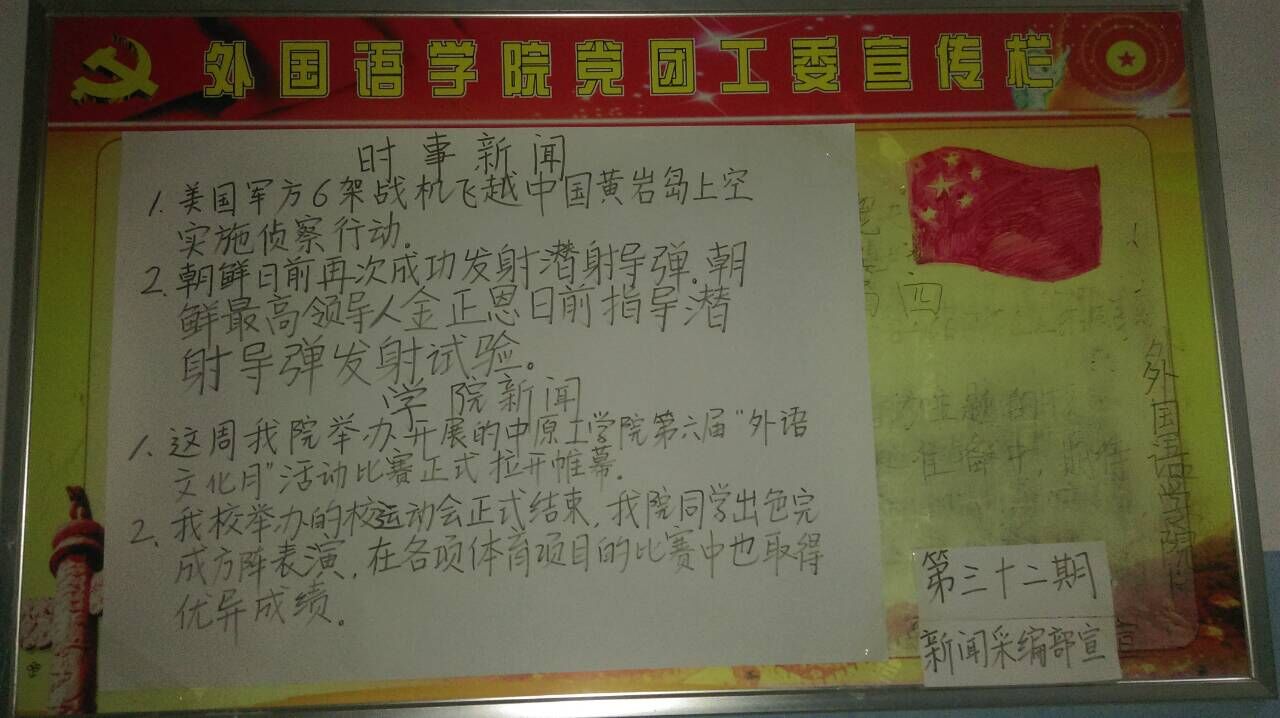 外国语学院党团工委宣传栏
时事新闻
1. 美国军方6架战机飞越中国黄岩岛上空
实施侦察行动。
2. 朝鲜日前再次成功发射潜射导弹。朝
鲜最高领导人金正恩日前指导潜
射导弹发射试验。
学院新闻
1. 这周我院举办开展的中原工学院第六届“外语
文化月”活动比赛正式拉开帷幕。
2. 我校举办的校运动会正式结束，我院同学出色完
成方阵表演，在各项体育项目的比赛中也取得
优异成绩。
四
外国语学院
第三十二期
新闻采编部宣